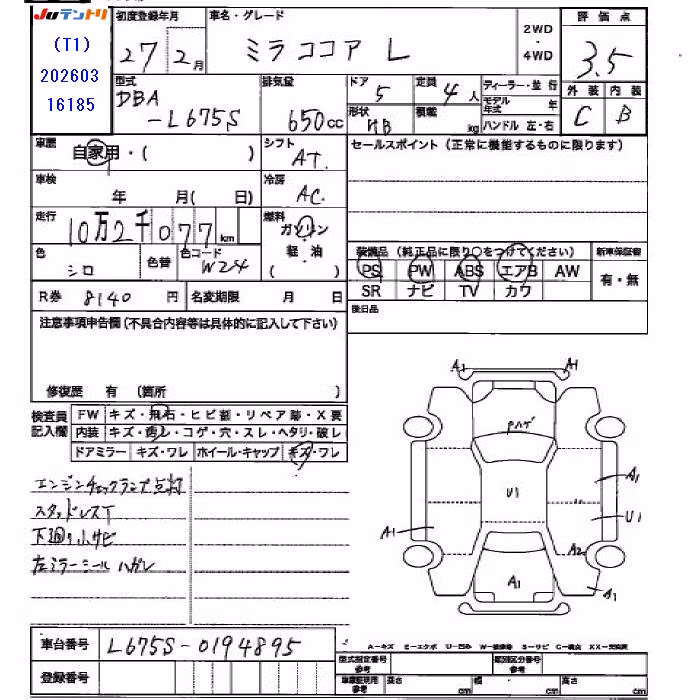 JUテントリ
(T1)
202603
16185
初度登録年月
27年2月
車名・グレード
ミラココア L
2WD
・
4WD
評価点
3.5
型式
DBA
-L675S
排気量
650cc
ドア
5
定員
4人
形状
HB
積載
kg
ディーラー・並行
モデル年式 年
ハンドル 左・右
外装
内装
C
B
車歴
自家用・( )
シフト
AT.
セールスポイント(正常に機能するものに限ります)
車検
年 月( )
冷房
AC.
走行
10万2千077km
燃料
ガソリン
軽・油
( )
色
シロ
色替
色コード
W24
装備品(純正品に限り○をつけてください)
PS PW ABS エアB AW
SR ナビ TV カワ
新車保証書
有・無
R券 8140円
名変期限 月 日
後日品
注意事項申告欄(不具合内容等は具体的に記入して下さい)
修復歴 有 (箇所 )
検査員
記入欄
FW キズ・飛石・ヒビ割・リペア跡・X要
内装 キズ・汚レ・コゲ・穴・スレ・ヘタリ・破レ
ドアミラー キズ・ワレ ホイール・キャップ キズ・ワレ
エンジンチェックランプ点灯
スタッドレスT
下廻り小サビ
左ミラーシールハガレ
A1 A1
Pハゲ
U1
A1
A1
U1
A2
A1
A1
車台番号
L675S-0194895
登録番号
A-キズ E-エクボ U-凹ミ W-補修跡 S-サビ C-腐食 XX-交換済
型式指定番号
参考
類別区分番号
参考
車庫証明用
参考
高さ cm
幅 cm
長さ cm